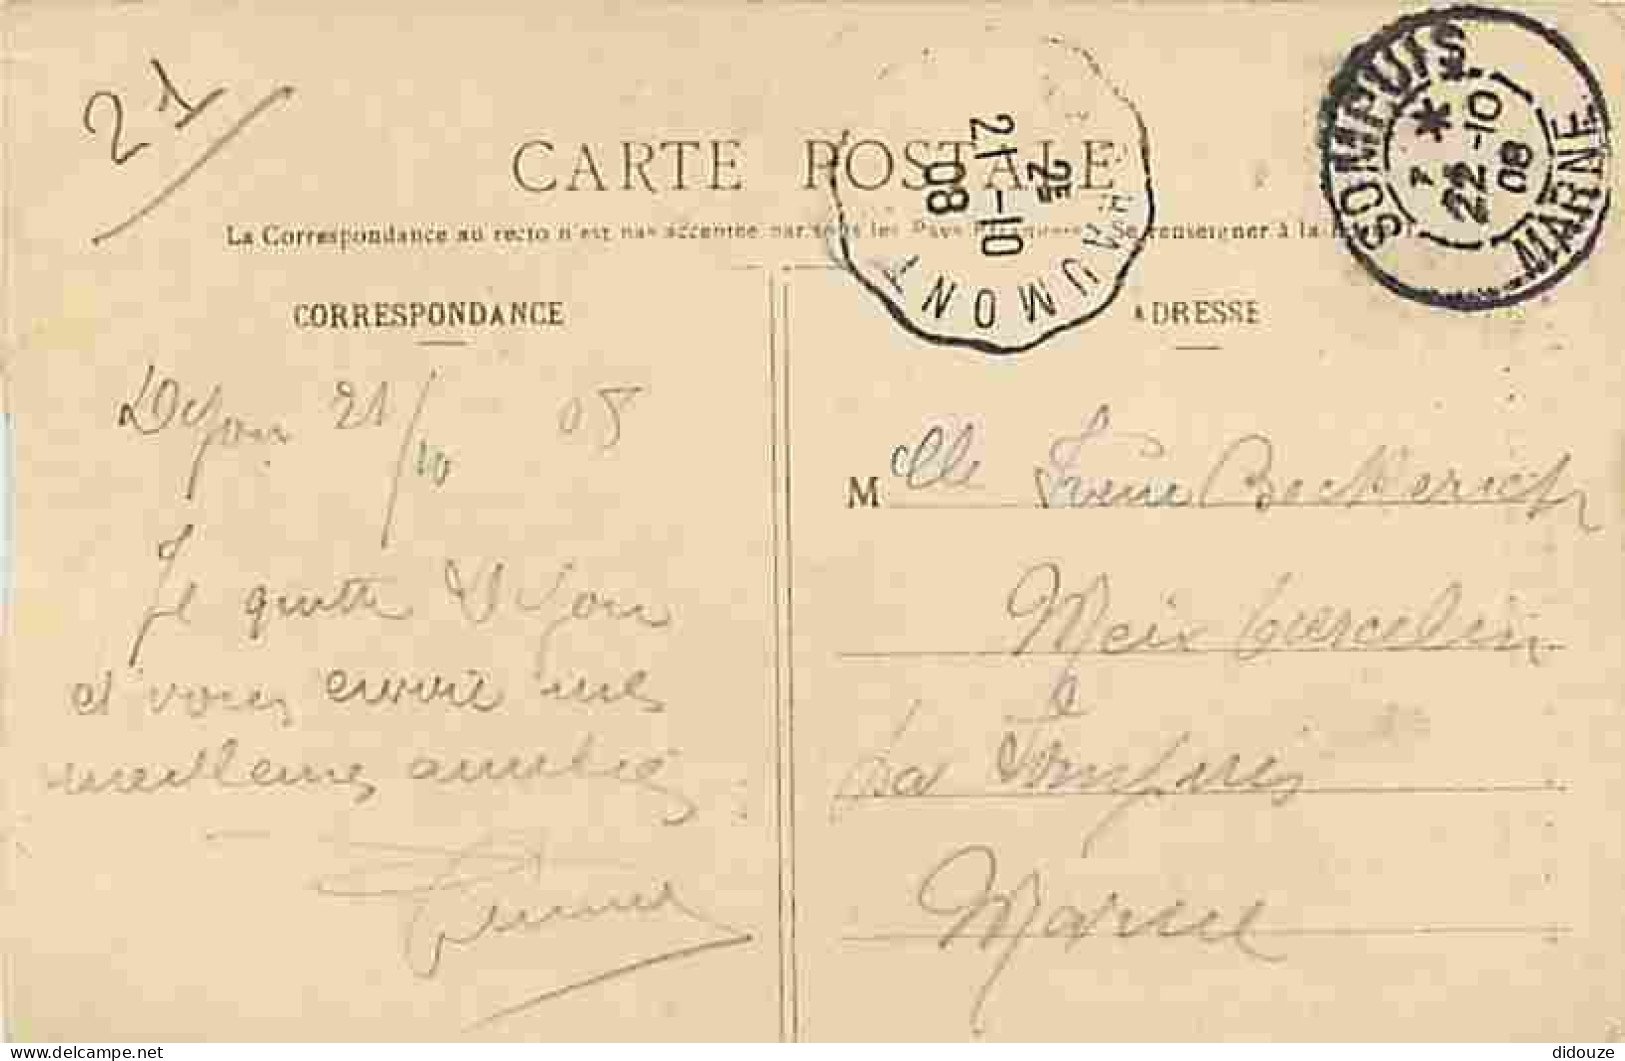 21
CARTE POSTALE
La Correspondance au recto n'est pas acceptée par tous les Pays Etrangers. Se renseigner à la
2E
21-10
08
UMONT
SOMPUIS
7 *
22-10
08
MARNE
CORRESPONDANCE
ADRESSE
Dijon 21/10 08
Je quitte Dijon
et vous envoie mes
meilleures amitiés
Melle Irène Beckerich
Meix Tiercelin
Sompuis
Marne
didouze